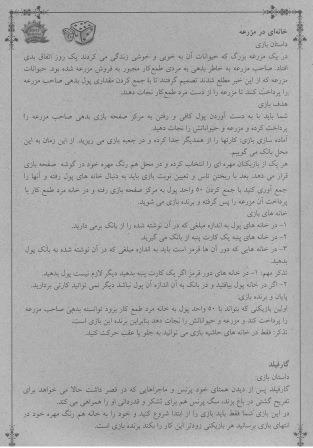 خانه‌ای در مزرعه
داستان بازی
در یک مزرعه بزرگ که حیوانات آن به خوبی و خوشی زندگی می کردند یک روز اتفاق بدی
افتاد. صاحب مزرعه به خاطر بدهی به مردی طمع کار مجبور به فروش مزرعه شده بود. حیوانات
مزرعه که از این خبر مطلع شدند تصمیم گرفتند تا با جمع کردن مقداری پول بدهی صاحب مزرعه
را پرداخت کنند تا مزرعه را از دست مرد طمع کار نجات دهند.
هدف بازی
شما باید با به دست آوردن پول کافی و رفتن به مرکز صفحه بازی بدهی صاحب مزرعه را
پرداخت کرده و مزرعه و حیواناتش را نجات دهید.
آماده سازی بازی: کارتها را از همدیگر جدا کرده و در جعبه بازی می ریزید. از این زمان به این
محل بانک می گوییم.
هر یک از بازیکنان مهره ای را انتخاب کرده و در محل هم رنگ مهره خود در گوشه صفحه بازی
قرار می دهد. بعد با ریختن تاس و تعیین نوبت بازی باید به دنبال خانه های پول رفته و آنها را
جمع آوری کنید با جمع کردن ۵۰ واحد پول به مرکز صفحه بازی رفته و در خانه مرد طمع کار با
پرداخت آن مزرعه را پس گرفته و برنده بازی می شوید.
خانه های بازی
۱- در خانه های پول به اندازه مبلغی که در آن نوشته شده را از بانک برمی دارید.
۲- در خانه های پنبه یک کارت پنبه از بانک می گیرید.
۳- در خانه هایی که دور آن ها قرمز است باید به اندازه مبلغی که در آن نوشته شده به بانک پول
بدهید.
تذکر مهم: ۱- در خانه های دور قرمز اگر یک کارت پنبه بدهید دیگر لازم نیست پول بدهید.
۲- اگر در خانه پول بیافتید و در بانک به آن اندازه آن پول نباشد دیگر نمی توانید کارتی بردارید.
پایان و برنده بازی:
اولین بازیکنی که بتواند با ۵۰ واحد پول به خانه مرد طمع کار برود توانسته بدهی صاحب مزرعه
را پرداخت کند و مزرعه و حیواناتش را نجات دهد بنابراین برنده این بازی است.
تذکر: فقط در خانه های حاشیه بازی می توانید به جلو یا عقب حرکت کنید.
گارفیلد
داستان بازی:
گارفیلد پس از دیدن همتای خود پرنس و ماجراهایی که در قصر داشت حالا می خواهد برای
تفریح گشتی در باغ بزند، سگ پرنس هم برای تشکر و قدردانی او را همراهی می کند.
در این بازی شما فقط باید بازی را از ابتدا شروع کنید و خود را به خانه هم رنگ مهره خود در
انتهای بازی برسانید هر بازیکنی زودتر این کار را بکند برنده بازی است.